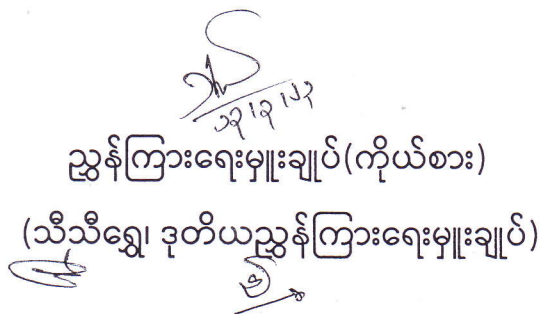 ၁၃၊၃၊၂၃
ညွှန်ကြားရေးမှူးချုပ်(ကိုယ်စား)
(သီသီရွှေ၊ ဒုတိယညွှန်ကြားရေးမှူးချုပ်)